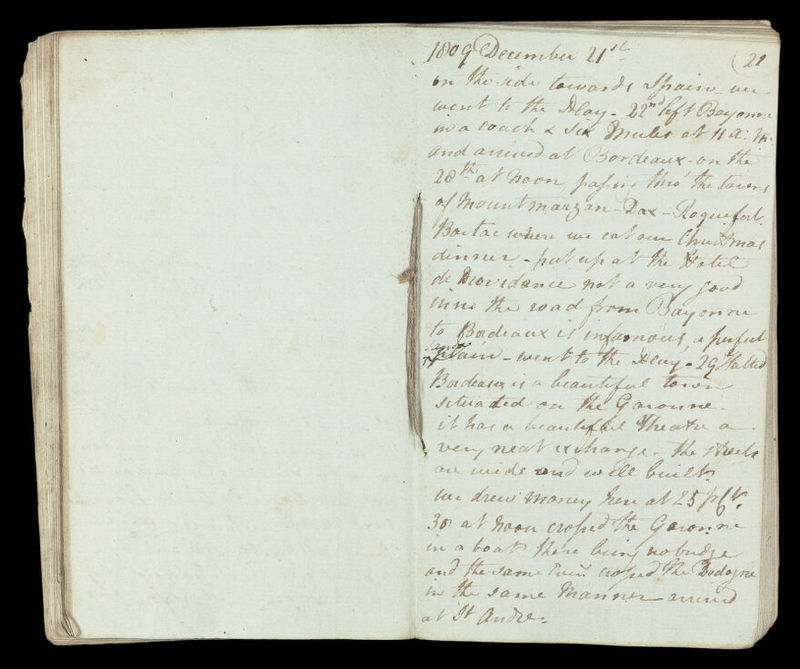 1809 December 21st
(21
on the side towards Spain - we
went to the Play - 22nd left Bayonne
in a coach & six Mules at 11 A: M:
and arrived at Bordeaux - on the
28th at Noon, passing thro' the towns
of Mountmarzan - Dax - Roquefort.
where we eat our Christmas
dinner - put up at the Hotel
de Providance not a very good
inn: the road from Bayonne
to Bordeaux is infamous, a perfect
plain - went to the Play - 29 Halted
Bordeaux is a beautiful town
situated on the Garonne -
it has a beautiful Theatre a
very neat exchange - the streets
are wide and well built:
we drew money here at 25
30 at Noon crossed the Garonne
in a boat there being no bridge
and the same crossed the
in the same Manner arrived
at St Andre: